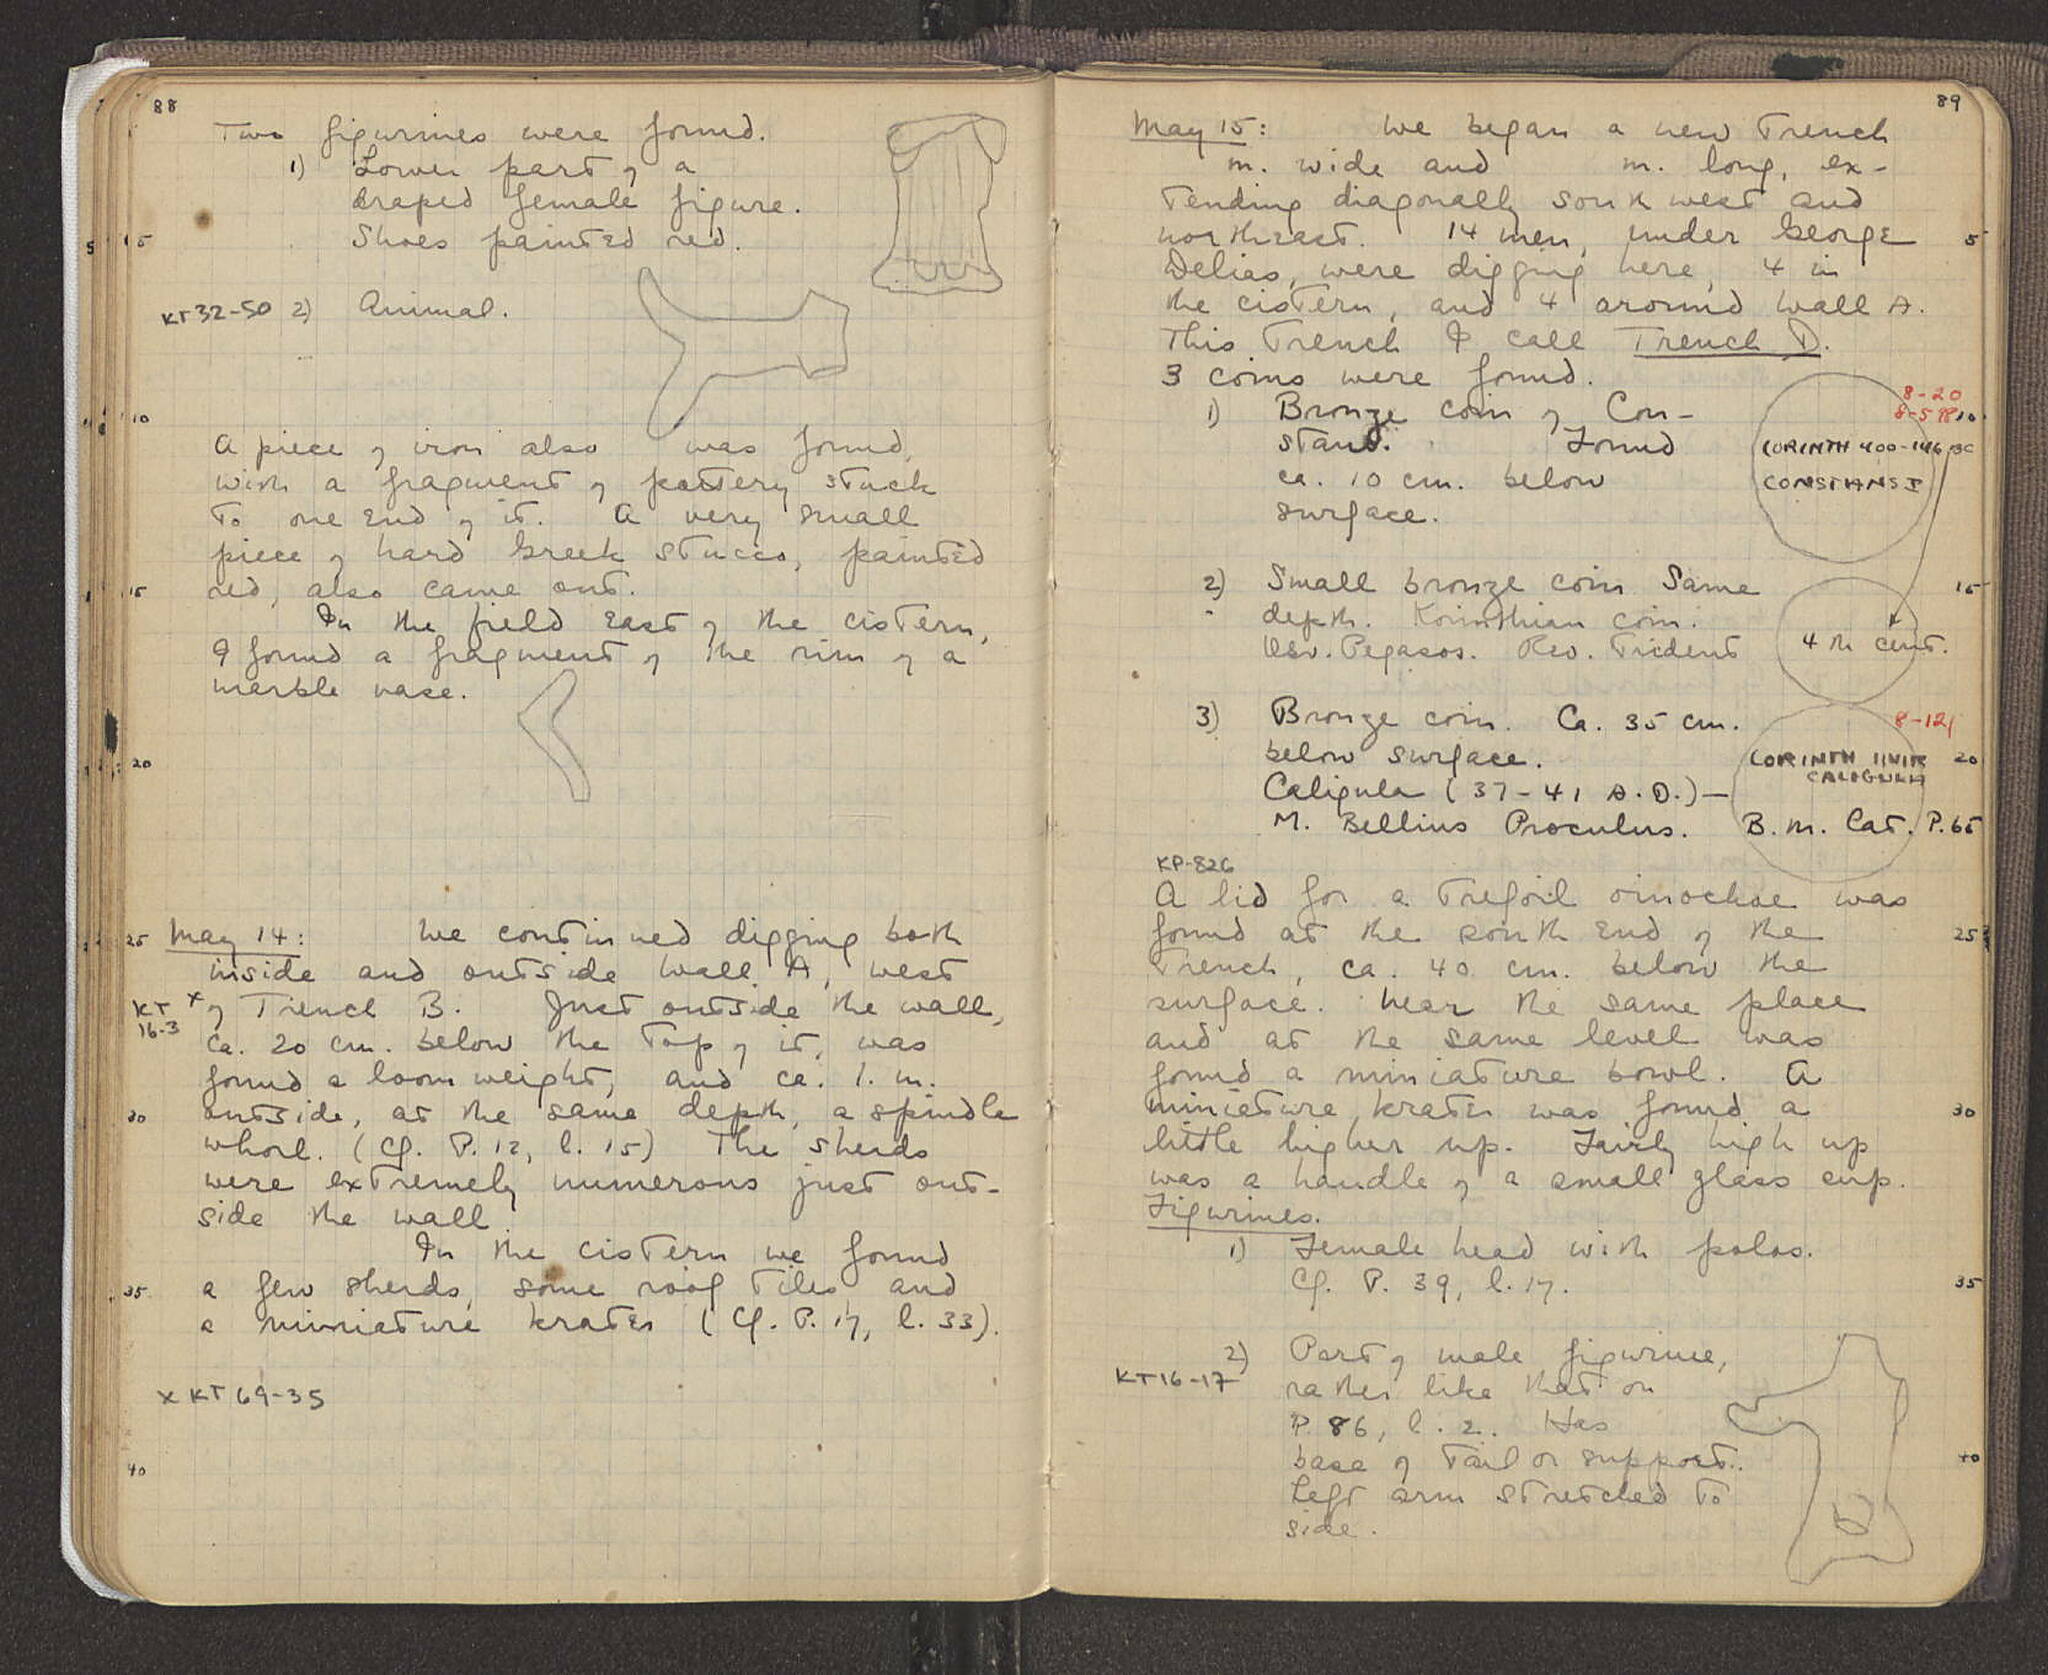 88
Two figurines were found.
1) Lower part of a
draped female figure.
Shoes painted red.
5
KT 32-50 2) Animal.
10
A piece of iron also was found,
with a fragment of pottery stuck
to one end of it. A very small
piece of hard Greek stucco, painted
15 red, also came out.
In the field east of the cistern,
I found a fragment of the rim of a
marble vase.
20
25 May 14: We continued digging both
inside and outside wall A, west
KT 16-3 x of Trench B. Just outside the wall,
ca. 20 cm. below the top of it, was
found a loom weight, and ca. 1. m.
30 outside, at the same depth, a spindle
whorl. (Cf. P. 12, l. 15) The sherds
were extremely numerous just out-
side the wall.
In the cistern we found
35 a few sherds, some roof tiles and
a miniature krater (Cf. P. 17, l. 33).
x KT 69-35
40
89
May 15: We began a new trench
m. wide and m. long, ex-
tending diagonally south west and
northeast. 14 men, under George 5
Delias, were digging here, 4 in
the cistern, and 4 around wall A.
This trench I call Trench D.
3 coins were found.
8-20
1) Bronze coin of Con- 8-598 10
stans. Found CORINTH 400-146 BC
ca. 10 cm. below CONSTANS I
surface.
2) Small bronze coin Same 15
depth. Korinthian coin.
Obv. Pegasos. Rev. Trident 4th cent.
3) Bronze coin. Ca. 35 cm. 8-121
below surface. CORINTH IIVIR 20
CALIGULA
Caligula (37-41 A.D.) —
M. Bellius Proculus. B.M. Cat. P. 65
KP-826
A lid for a trefoil oinochoe was
found at the south end of the 25
trench, ca. 40 cm. below the
surface. Near the same place
and at the same level was
found a miniature bowl. A
miniature krater was found a 30
little higher up. Fairly high up
was a handle of a small glass cup.
Figurines.
1) Female head with polos.
Cf. P. 39, l. 17. 35
2) Part of male figurine,
KT 16-17 rather like that on
P. 86, l. 2. Has
base of tail or support. 40
Left arm stretched to
side.